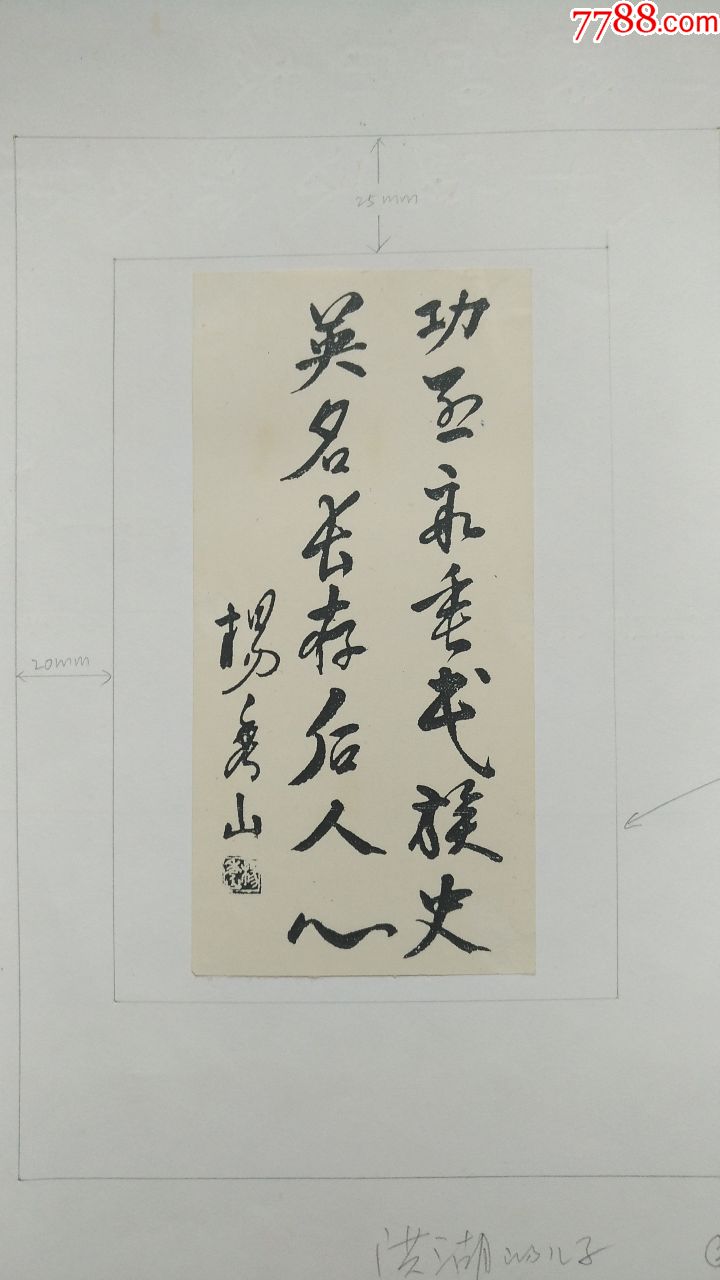 7788.com
25mm
功业永垂民族史
英名长存后人心
楊秀山
20mm
洪湖的儿子